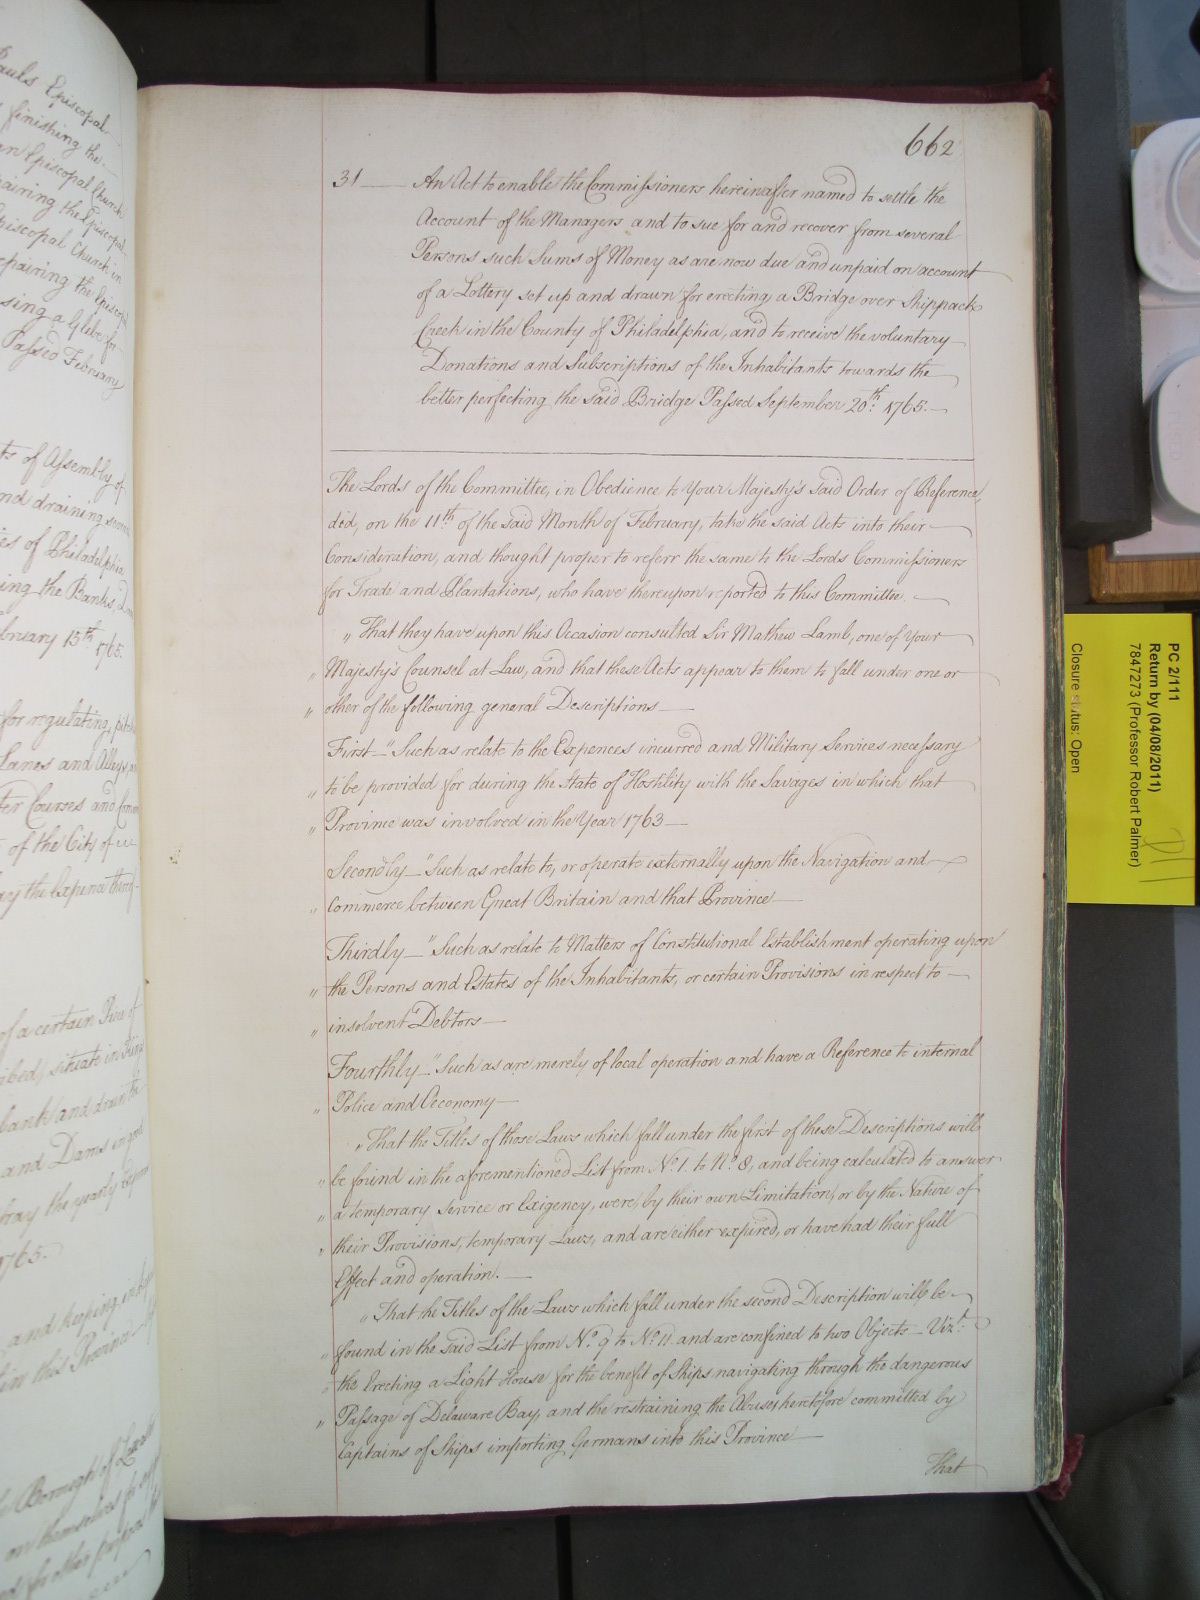 662
31 An Act to enable the Commissioners hereinafter named to settle the
Account of the Managers and to sue for and recover from several
Persons such Sums of Money as are now due and unpaid on account
of a Lottery set up and drawn for erecting a Bridge over Skippack
Creek in the County of Philadelphia, and to receive the voluntary
Donations and Subscriptions of the Inhabitants towards the
better perfecting the said Bridge Passed September 20th: 1765.
The Lords of the Committee, in Obedience to Your Majesty's said Order of Reference,
did, on the 11th of the said Month of February, take the said Acts into their
Consideration, and thought proper to referr the same to the Lords Commissioners
for Trade and Plantations, who have thereupon reported to this Committee.
"That they have upon this Occasion consulted Sir Mathew Lamb, one of Your
" Majesty's Counsel at Law, and that these Acts appear to them to fall under one or
" other of the following general Descriptions
First "Such as relate to the Expences incurred and Military Services necessary
" to be provided for during the State of Hostility with the Savages in which that
" Province was involved in the Year 1763
Secondly "Such as relate to, or operate externally upon the Navigation and
" Commerce between Great Britain and that Province
Thirdly "Such as relate to Matters of Constitutional Establishment operating upon
" the Persons and Estates of the Inhabitants, or certain Provisions in respect to
" insolvent Debtors
Fourthly "Such as are merely of local operation and have a Reference to internal
" Police and Oeconomy
"That the Titles of those Laws which fall under the first of these Descriptions will
" be found in the aforementioned List from No. 1. to No. 8, and being calculated to answer
" a temporary Service or Exigency, were, by their own Limitation, or by the Nature of
" their Provisions, temporary Laws, and are either expired, or have had their full
Effect and operation.
"That the Titles of the Laws which fall under the second Description will be
" found in the said List from No. 9 to No. 11 and are confined to two Objects Vizt.
" the Erecting a Light House for the benefit of Ships navigating through the dangerous
" Passage of Delaware Bay, and the restraining the Abuses heretofore committed by
Captains of Ships importing Germans into this Province
That
PC 2/111
Return by (04/08/2011)
7847273 (Professor Robert Palmer)
Closure status: Open
Episcopal
finishing the
Episcopal Church
repairing the Episcopal
Episcopal Church in
repairing the Episcopal
a Glebe for
Passed February
of Assembly of
and draining
of Philadelphia
the Banks,
February 15th 1765.
for regulating,
Lanes and Alleys,
Courses and
of the City of
the Expence
of a certain
situate in
bank and
and Dams in
the yearly
1765.
and keeping in
in this Province
Borough of